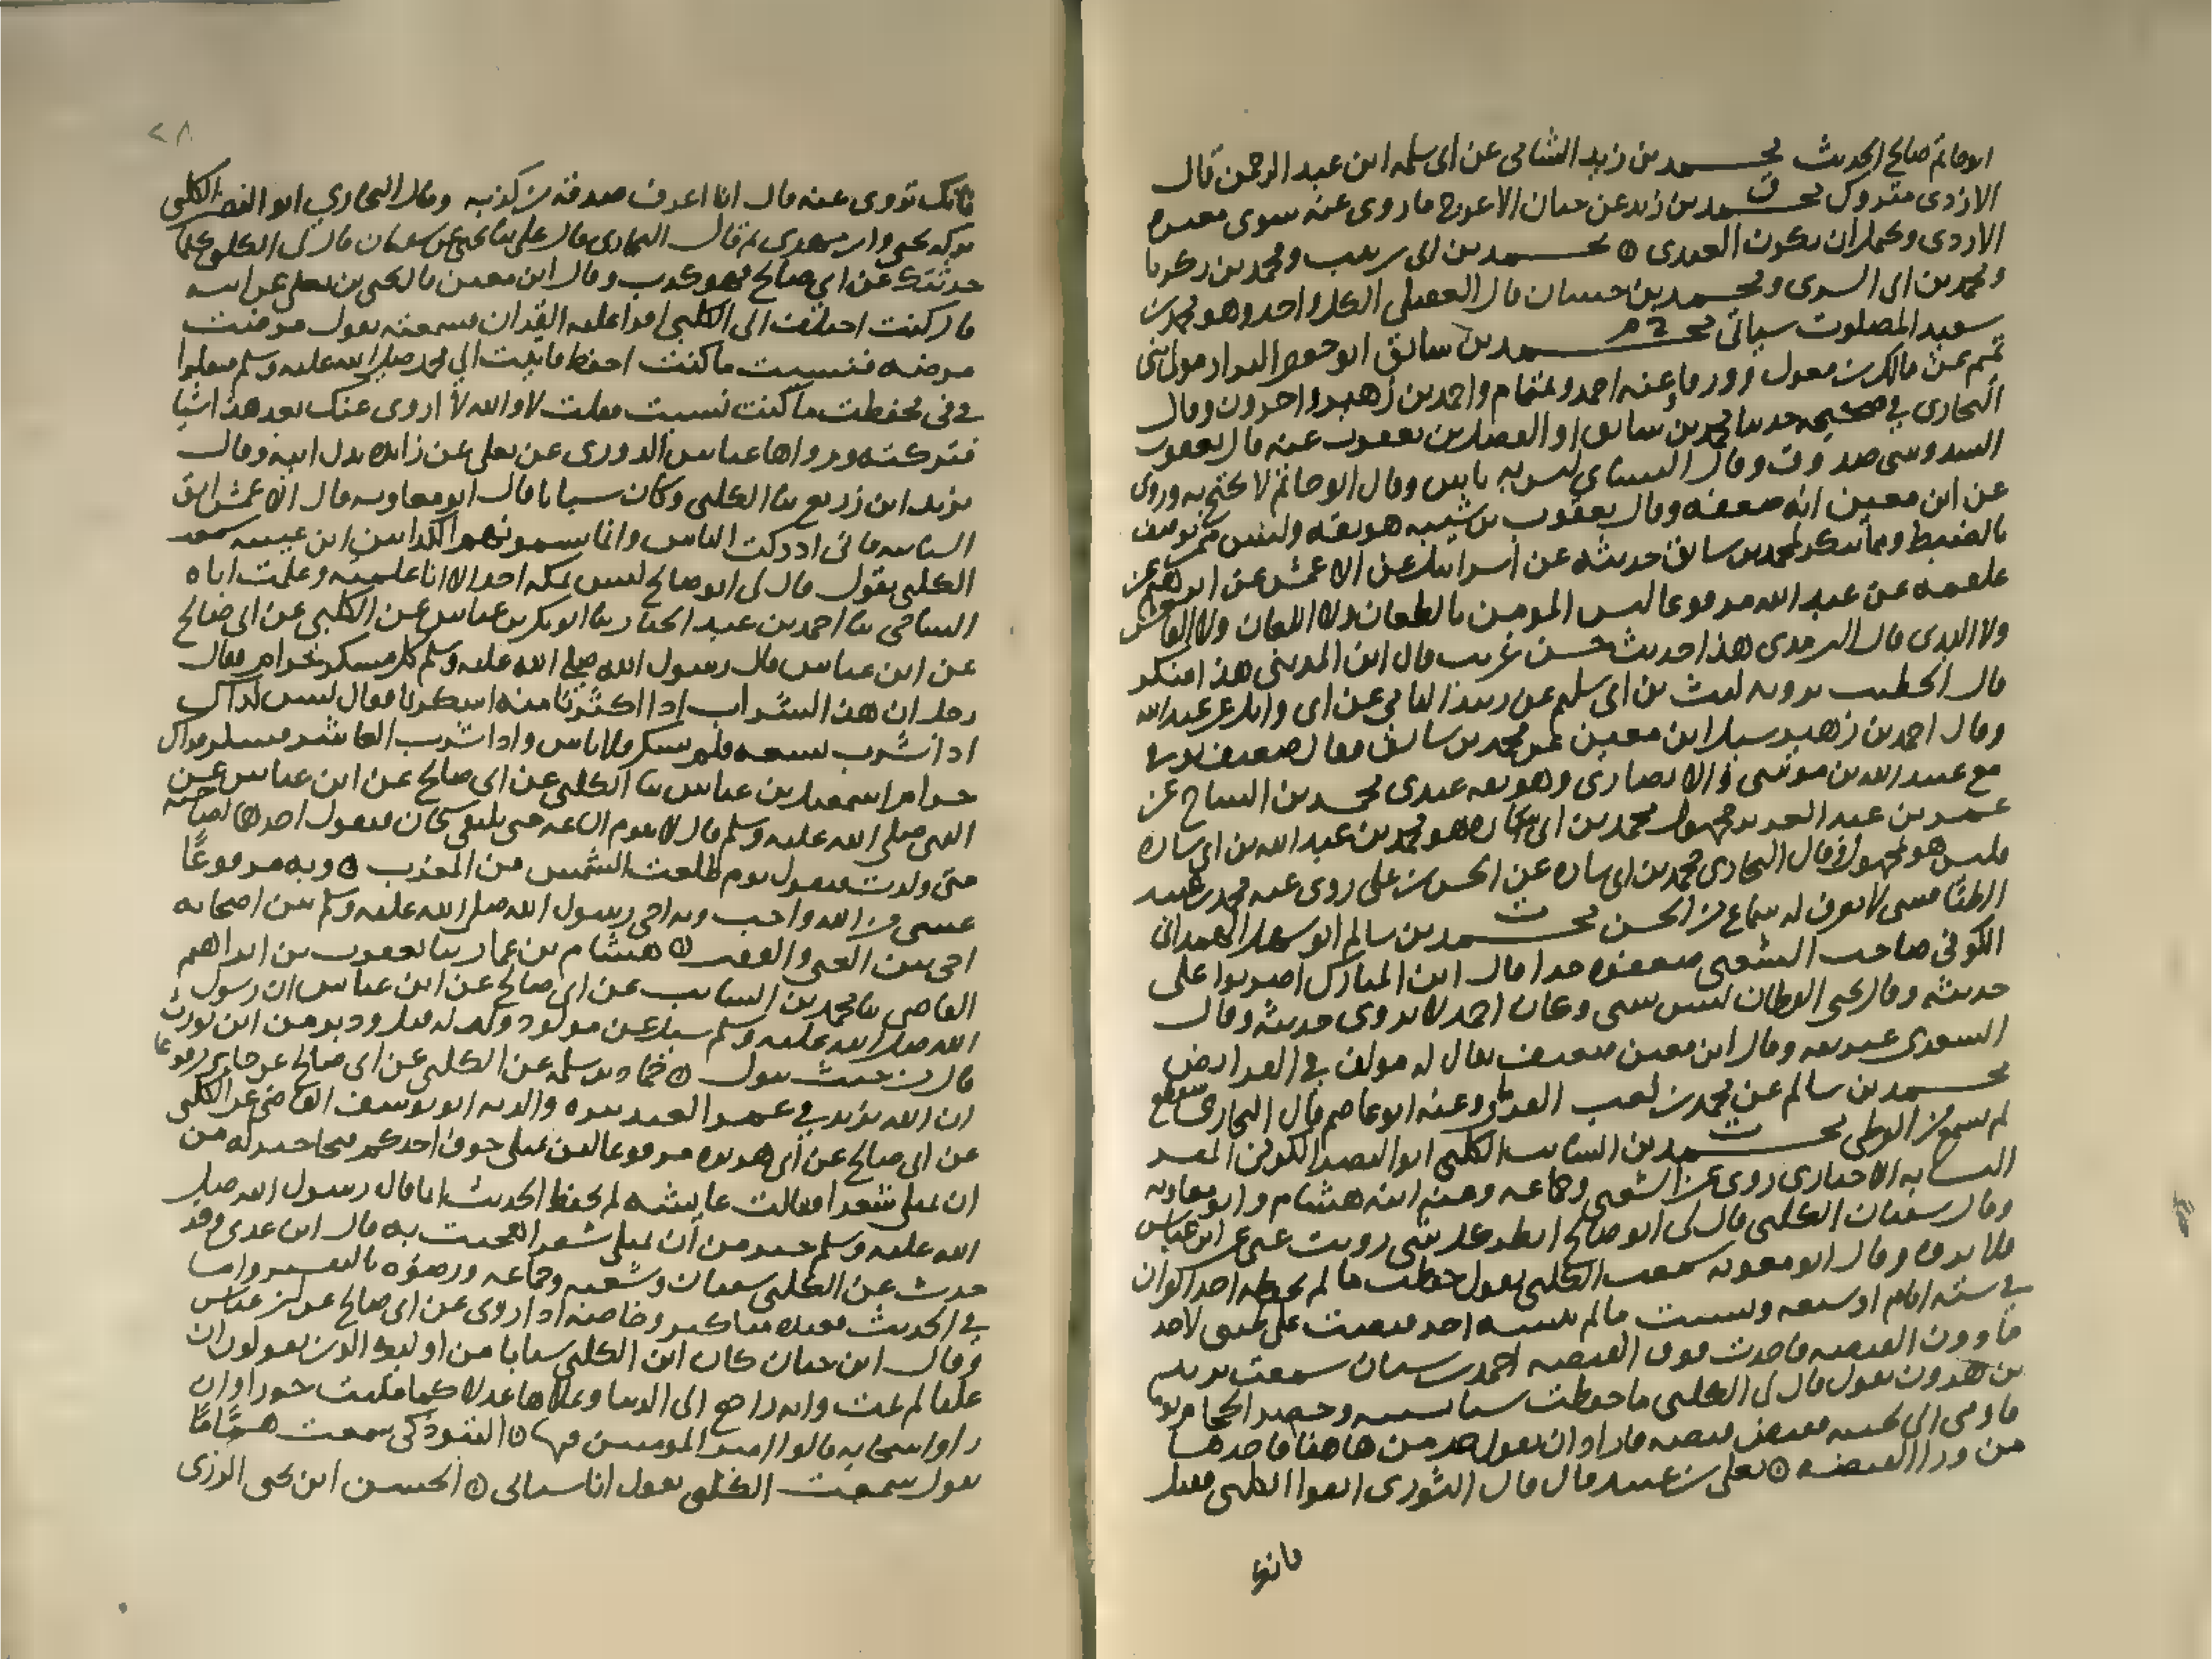 ابو حاتم صالح الحديث محمد بن زيد الشامي عن ابي سلمه ابن عبد الرحمن قال
الازدي متروك محمد بن زيد عن حيان الاعرج ما روى عنه سوى معمر
الازدي ويحتمل ان يكون العبدي محمد بن ابي زينب ومحمد بن زكريا
ومحمد بن ابي السري ومحمد بن حسان قال العقيلي الكل واحد وهو محمد بن
سعيد المصلوب سياتي محمد بن سابق ابو جعفر البزاز مولى بني
تميم عن مالك بن مغول وورقا وعنه احمد وتمتام واحمد بن زهير واخرون وقال
البخاري في صحيحه حدثنا محمد بن سابق او الفضل بن يعقوب عنه قال يعقوب
السدوسي صدوق وقال النسائي ليس به باس وقال ابو حاتم لا يحتج به وروي
عن ابن معين انه ضعفه وقال يعقوب بن شيبه هو ثقه وليس ممن يوصف
بالضبط ومما ينكر لمحمد بن سابق حديثه عن اسرائيل عن الاعمش عن ابرهيم عن
علقمه عن عبد الله مرفوعا ليس المومن بالطعان ولا اللعان ولا الفاحش
ولا البذي قال الترمذي هذا حديث حسن غريب قال ابن المديني هذا منكر
قال الخطيب يرويه ليث بن ابي سليم عن زبيد اليامي عن ابي وايل عن عبد الله
وقال احمد بن زهير سيل ابن معين عن محمد بن سابق فقال ضعيف
مع عبيد الله بن موسى والانصاري وهو ثقه عندي محمد بن الساج عن
عمر بن عبد العزيز مجهول محمد بن ابي ساره هو محمد بن عبد الله بن ابي ساره
فليس هو لمجهول وقال البخاري محمد بن ابي ساره عن الحسن بن علي روى عنه محمد بن عبيد
الطنافسي لا يعرف له سماع من الحسن محمد بن سالم ابو سهل الهمداني
الكوفي صاحب الشعبي ضعفوه جدا قال ابن المبارك اضربوا على
حديثه وقال يحيى القطان ليس بشي وكان احمد لا يروي حديثه وقال
السعدي غير ثقه وقال ابن معين ضعيف يقال له مولف في الفرايض
محمد بن سالم عن محمد بن كعب القرظي وعنه ابو عاصم قال البخاري منقطع
لم يسمع من القرظي محمد بن السايب الكلبي ابو النضر الكوفي المفسر
النسابه الاخباري روى عن الشعبي وجماعه وعنه ابنه هشام وابو معاويه
وقال سفيان الكلبي قال لي ابو صالح انظر كل شي رويت عني عن ابن عباس
فلا تروه وقال ابو معويه سمعت الكلبي يقول حفظت ما لم يحفظه احد القران
في سته ايام او سبعه ونسيت ما لم ينسه احد قبضت على لحيتي لاخذ
ما دون القبضه فاخذت فوق القبضه احمد بن سنان سمعت يزيد
بن هرون يقول قال لي الكلبي ما حفظت شيا فنسيه وحضر الحجام
فاومى الى لحيته فقبض قبضه فاراد ان يقول خذ من هاهنا فاخذها
من ورا القبضه يعلى بن عبيد قال قال الثوري اتقوا الكلبي فقيل
فانك
٢٨
فانك تروي عنه قال انا اعرف صدقه من كذبه وقال البخاري ابو النضر الكلبي
تركه يحيى وابن مهدي ثم قال البخاري قال علي ثنا يحيى عن سفيان قال لي الكلبي كلما
حدثتك عن ابي صالح فهو كذب وقال ابن معين نا يحيى بن يعلى عن ابيه
قال كنت اختلف الى الكلبي اقرا عليه القران فسمعته يقول مرضت
مرضه فنسيت ما كنت احفظ فاتيت ال محمد صلى الله عليه وسلم فتفلوا
في في فحفظت ما كنت نسيت فقلت لا والله لا اروي عنك بعد هذا شيا
فتركته ورواها عباس الدوري عن يعلى عن زايده بدل ابيه وقال
يزيد ابن زريع ثنا الكلبي وكان سبايا قال ابو معاويه قال الاعمش اتق
السبايه فاني ادركت الناس وانما يسمونهم الكذابين ابن عيينه سمعت
الكلبي يقول قال لي ابو صالح ليس بمكه احد الا انا علمته وعلمت اباه
الساجي ثنا احمد بن عبد الجبار ثنا ابو بكر بن عياش عن الكلبي عن ابي صالح
عن ابن عباس قال رسول الله صلى الله عليه وسلم كل مسكر حرام فقال
رجل ان هذا الشراب اذا اكثرنا منه اسكرنا فقال ليس كذاك
اذا شرب تسعه فلم يسكر فلا باس واذا شرب العاشر فسكر فذاك
حرام اسمعيل بن عياش ثنا الكلبي عن ابي صالح عن ابن عباس عن
النبي صلى الله عليه وسلم قال لا تقوم الساعه حتى يلتقي الشيخان فيقول احدهما لصاحبه
متى ولدت فيقول يوم طلعت الشمس من المغرب وبه مرفوعا
عسى من الله واجب وبه اخى رسول الله صلى الله عليه وسلم بين اصحابه
اخى بين الغني والفقير هشام بن عمار ثنا يعقوب بن ابراهيم
القاضي ثنا محمد بن السايب عن ابي صالح عن ابن عباس ان رسول
الله صلى الله عليه وسلم سيل عن مولود ولد له قبل ودبر من اين يورث
قال من حيث يبول حماد بن سلمه عن الكلبي عن ابي صالح عن جابر مرفوعا
ان الله يزيد في عمر العبد ببره والديه ابو يوسف القاضي عن الكلبي
عن ابي صالح عن ابي هريره مرفوعا لان يمتلي جوف احدكم قيحا خير له من
ان يمتلي شعرا فقالت عايشه لم يحفظ الحديث انما قال رسول الله صلى
الله عليه وسلم خير من ان يمتلي شعرا هجيت به قال ابن عدي وقد
حدث عن الكلبي سفيان وشعبه وجماعه ورضوه بالتفسير واما
في الحديث فعنده مناكير وخاصه اذا روى عن ابي صالح عن ابن عباس
وقال ابن حبان كان ابن الكلبي سبايا من اوليك الذين يقولون ان
عليا لم يمت وانه راجع الى الدنيا ويملاها عدلا كما مليت جورا وان
راوا سحابه قالوا امير المومنين فيها التبوذكي سمعت هماما
يقول سمعت الكلبي يقول انا سباي الحسن ابن يحيى الرزي